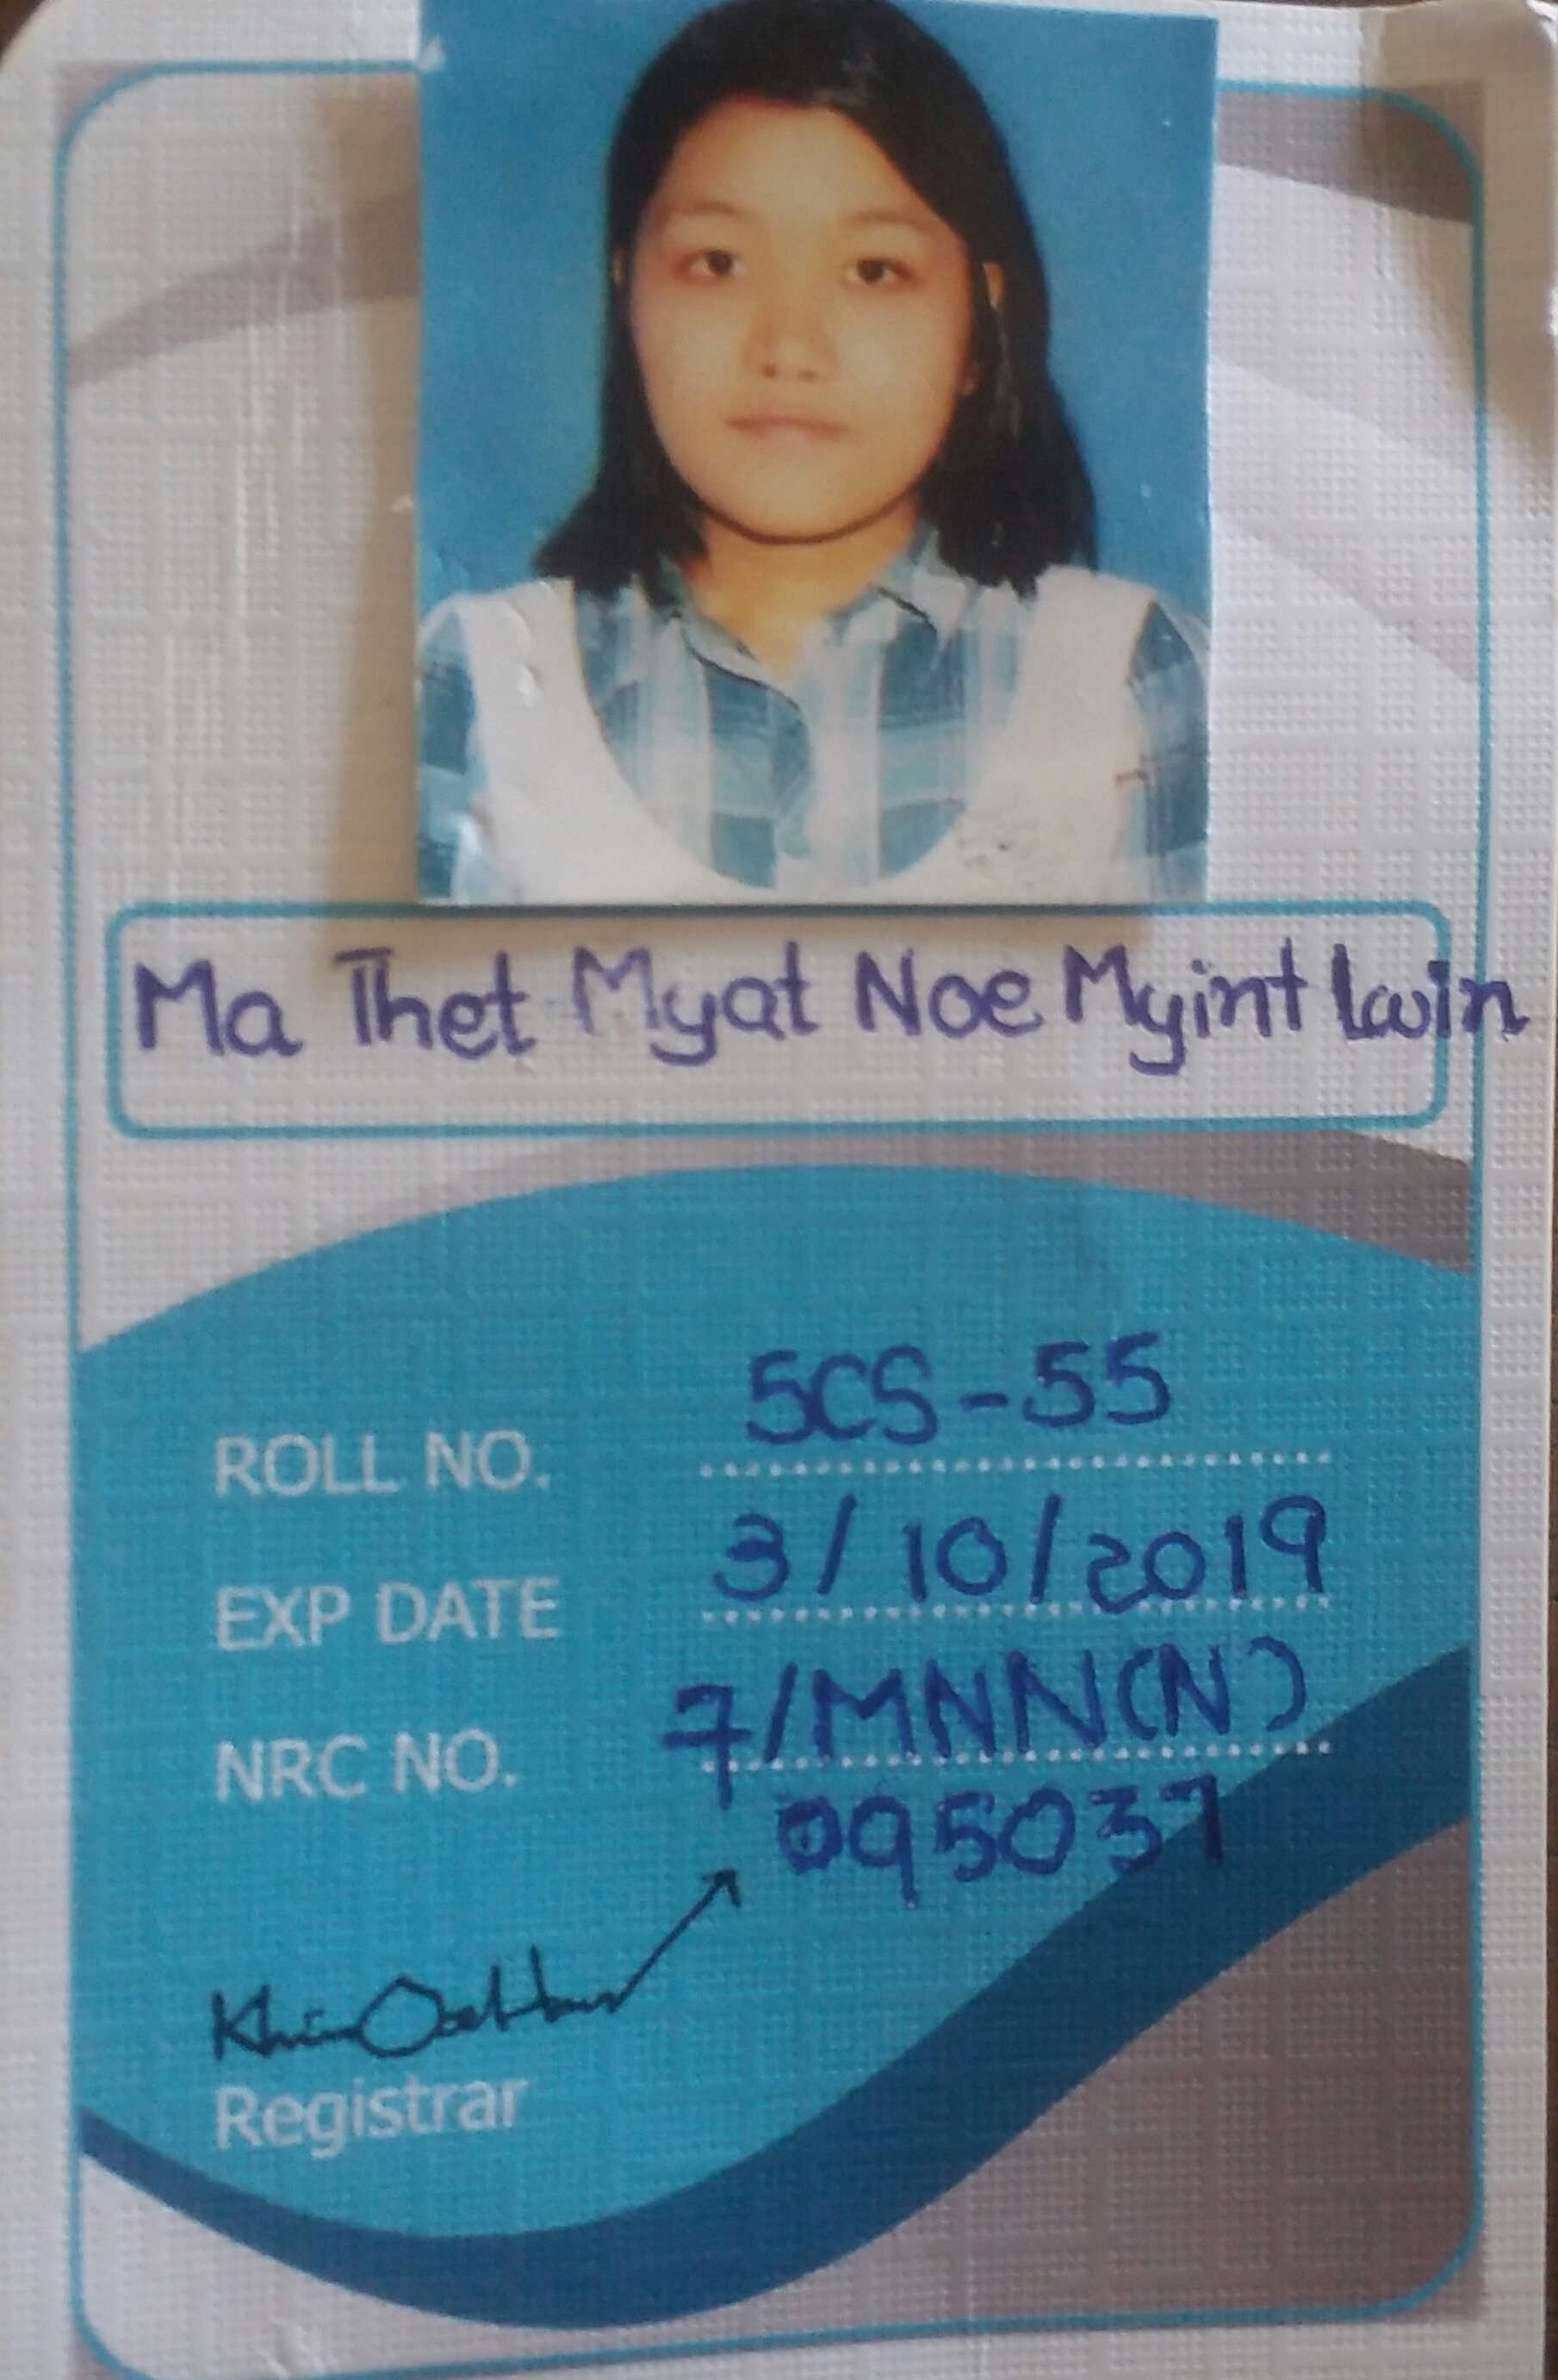 Ma Thet Myat Noe Myint Lwin
ROLL NO. 5CS-55
EXP DATE 3/10/2019
NRC NO. 7/MNN(N)
095037
Registrar